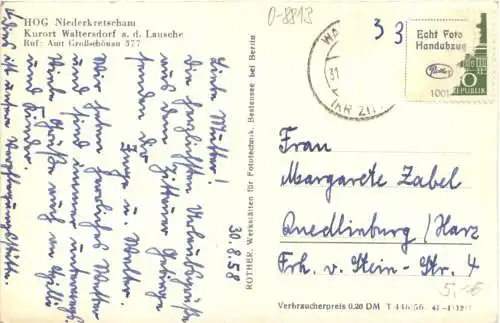 HOG Niederkretscham
Kurort Waltersdorf a. d. Lausche
Ruf: Amt Großschönau 377
O-8813
33
Echt Foto
Handabzug
Rother
1001
10
REPUBLIK
WA
31
(KR ZIT
30.8.58
Liebe Mutter!
Die herzlichsten Urlaubsgrüße
aus dem Zittauer Gebirge
senden Dir
Inge u. Walter.
Wir haben herrliches Wetter
und sind immer unterwegs.
Viele Grüße auch an
und Kinder.
ist unsere
ROTHER, Werkstätten für Fototechnik, Bestensee bei Berlin
Frau
Margarete Zabel
Quedlinburg/Harz
Frh. v. Stein-Str. 4
5,-
Verbraucherpreis 0.20 DM T 446/56